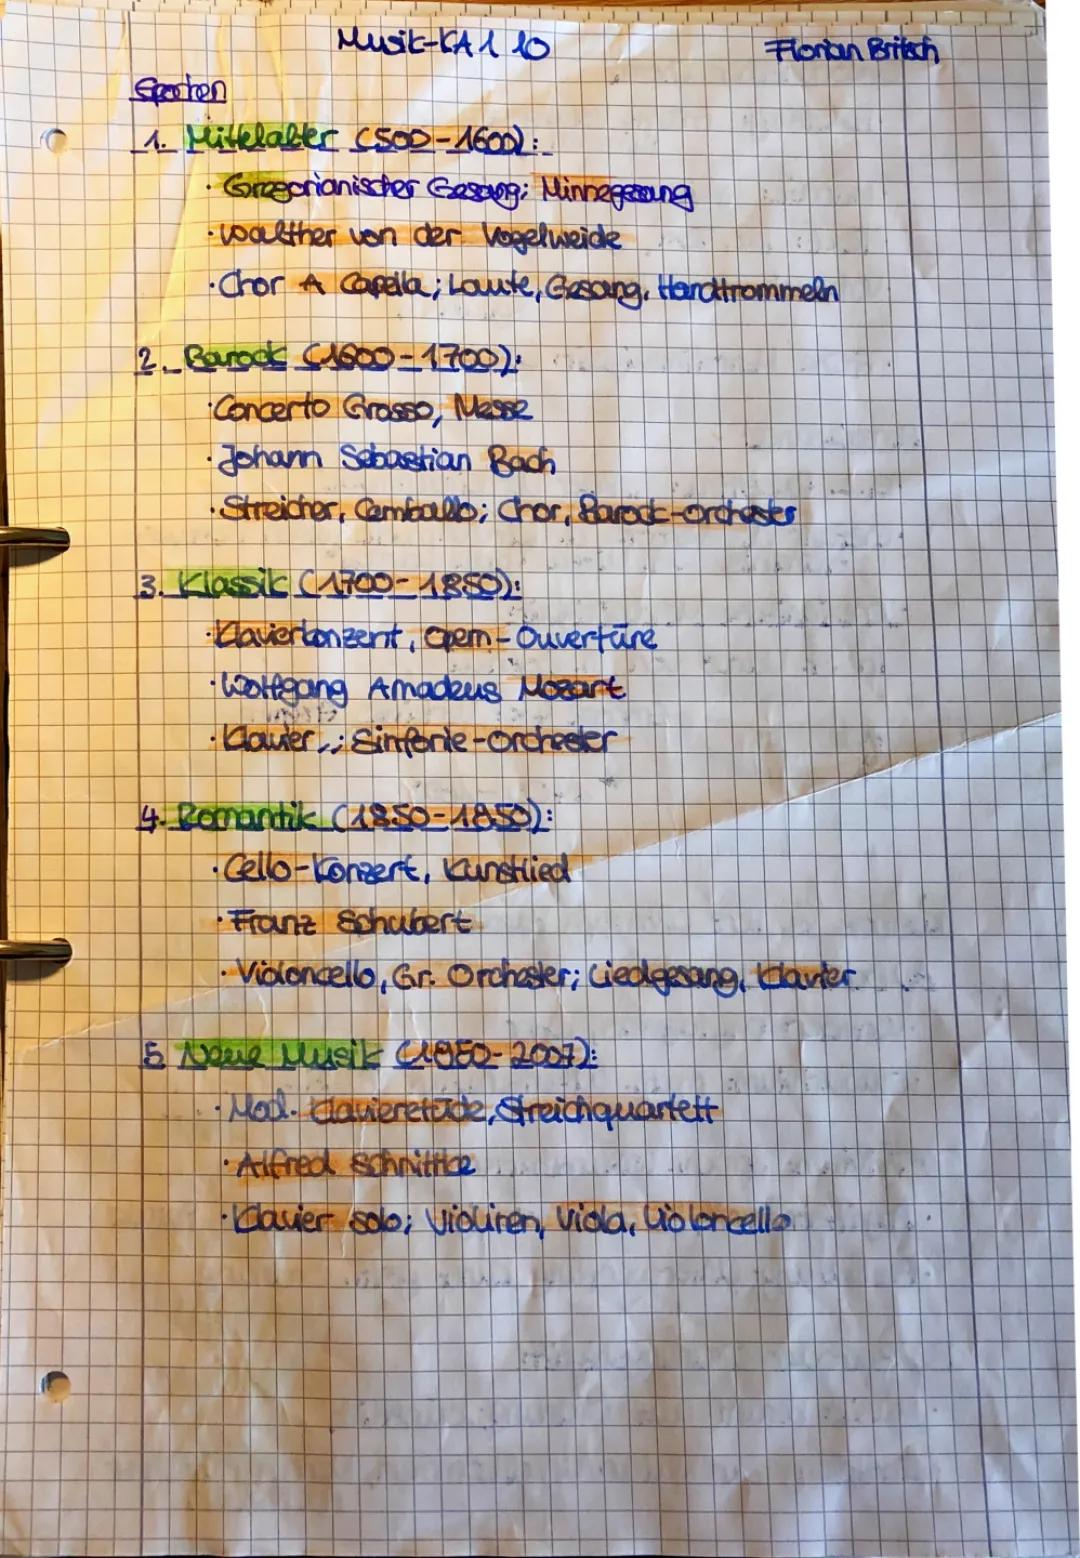 Musik-KA 1 10
Florian Britsch
Epochen
1. Mittelalter (500-1600):
· Gregorianischer Gesang; Minnegesang
· Walther von der Vogelweide
· Chor A Capella; Laute, Gesang, Handtrommeln
2. Barock (1600-1700):
· Concerto Grosso, Messe
· Johann Sebastian Bach
· Streicher, Cemballo; Chor, Barock-orchester
3. Klassik (1700-1850):
· Klavierkonzert, Opern-Ouvertüre
· Wolfgang Amadeus Mozart
· Klavier,; Sinfonie-orchester
4. Romantik (1850-1850):
· Cello-Konzert, Kunstlied
· Franz Schubert
· Violoncello, Gr. Orchester; Liedgesang, Klavier
5. Neue Musik (1950-2007):
· Mod. Klavieretüde, Streichquartett
· Alfred Schnittke
· Klavier solo; Violinen, Viola, Violoncello